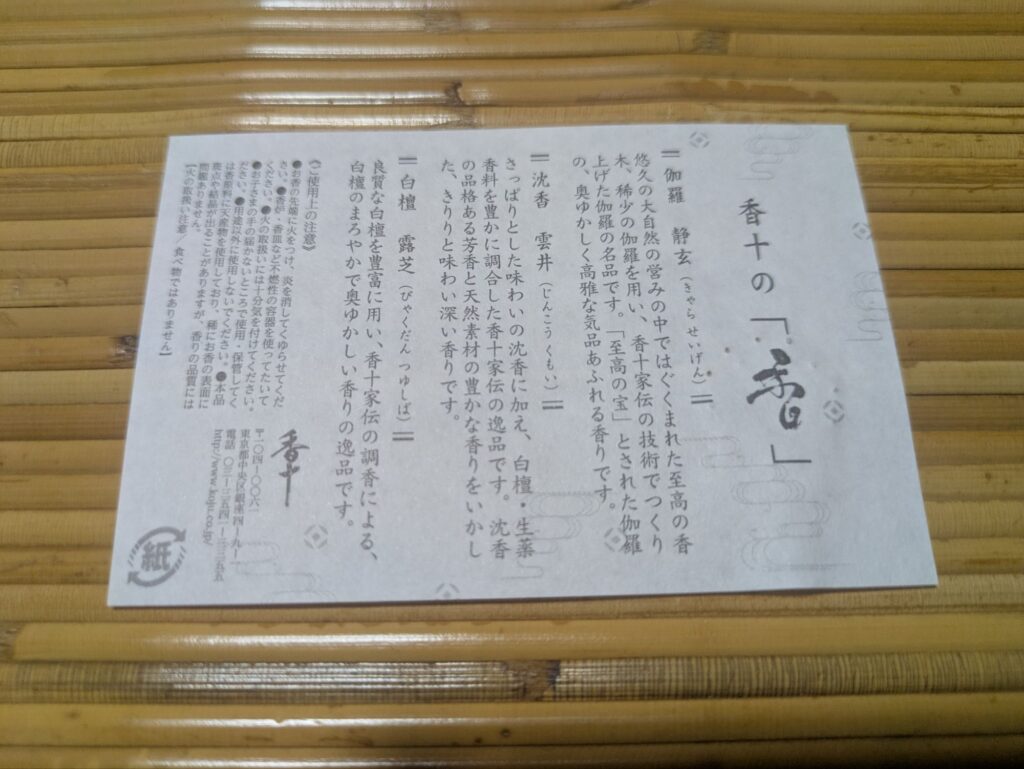 香十の「香」
伽羅 静玄（きゃら せいげん）
悠久の大自然の営みの中ではぐくまれた至高の香
木、稀少の伽羅を用い、香十家伝の技術でつくり
上げた伽羅の名品です。「至高の宝」とされた伽羅
の、奥ゆかしく高雅な気品あふれる香りです。
沈香 雲井（じんこう くもい）
さっぱりとした味わいの沈香に加え、白檀・生薬
香料を豊かに調合した香十家伝の逸品です。沈香
の品格ある芳香と天然素材の豊かな香りをいかし
た、きりりと味わい深い香りです。
白檀 露芝（びゃくだん つゆしば）
良質な白檀を豊富に用い、香十家伝の調香による、
白檀のまろやかで奥ゆかしい香りの逸品です。
《ご使用上の注意》
●お香の先端に火をつけ、炎を消してくゆらせてくだ
さい。●香炉・香皿など不燃性の容器を使ってたいて
ください。●火の取扱いには十分気を付けてください。
●お子さまの手の届かないところで使用・保管してく
ださい。●用途以外に使用しないでください。●本品
は香原料に天産物を使用しており、稀にお香の表面に
斑点や結晶が出ることがありますが、香りの品質には
問題ありません。
【火の取扱い注意／食べ物ではありません】
香十
〒一〇四-〇〇六一
東京都中央区銀座四-九-一
電話 〇三-三五四一-三三五五
http://www.koju.co.jp/
紙